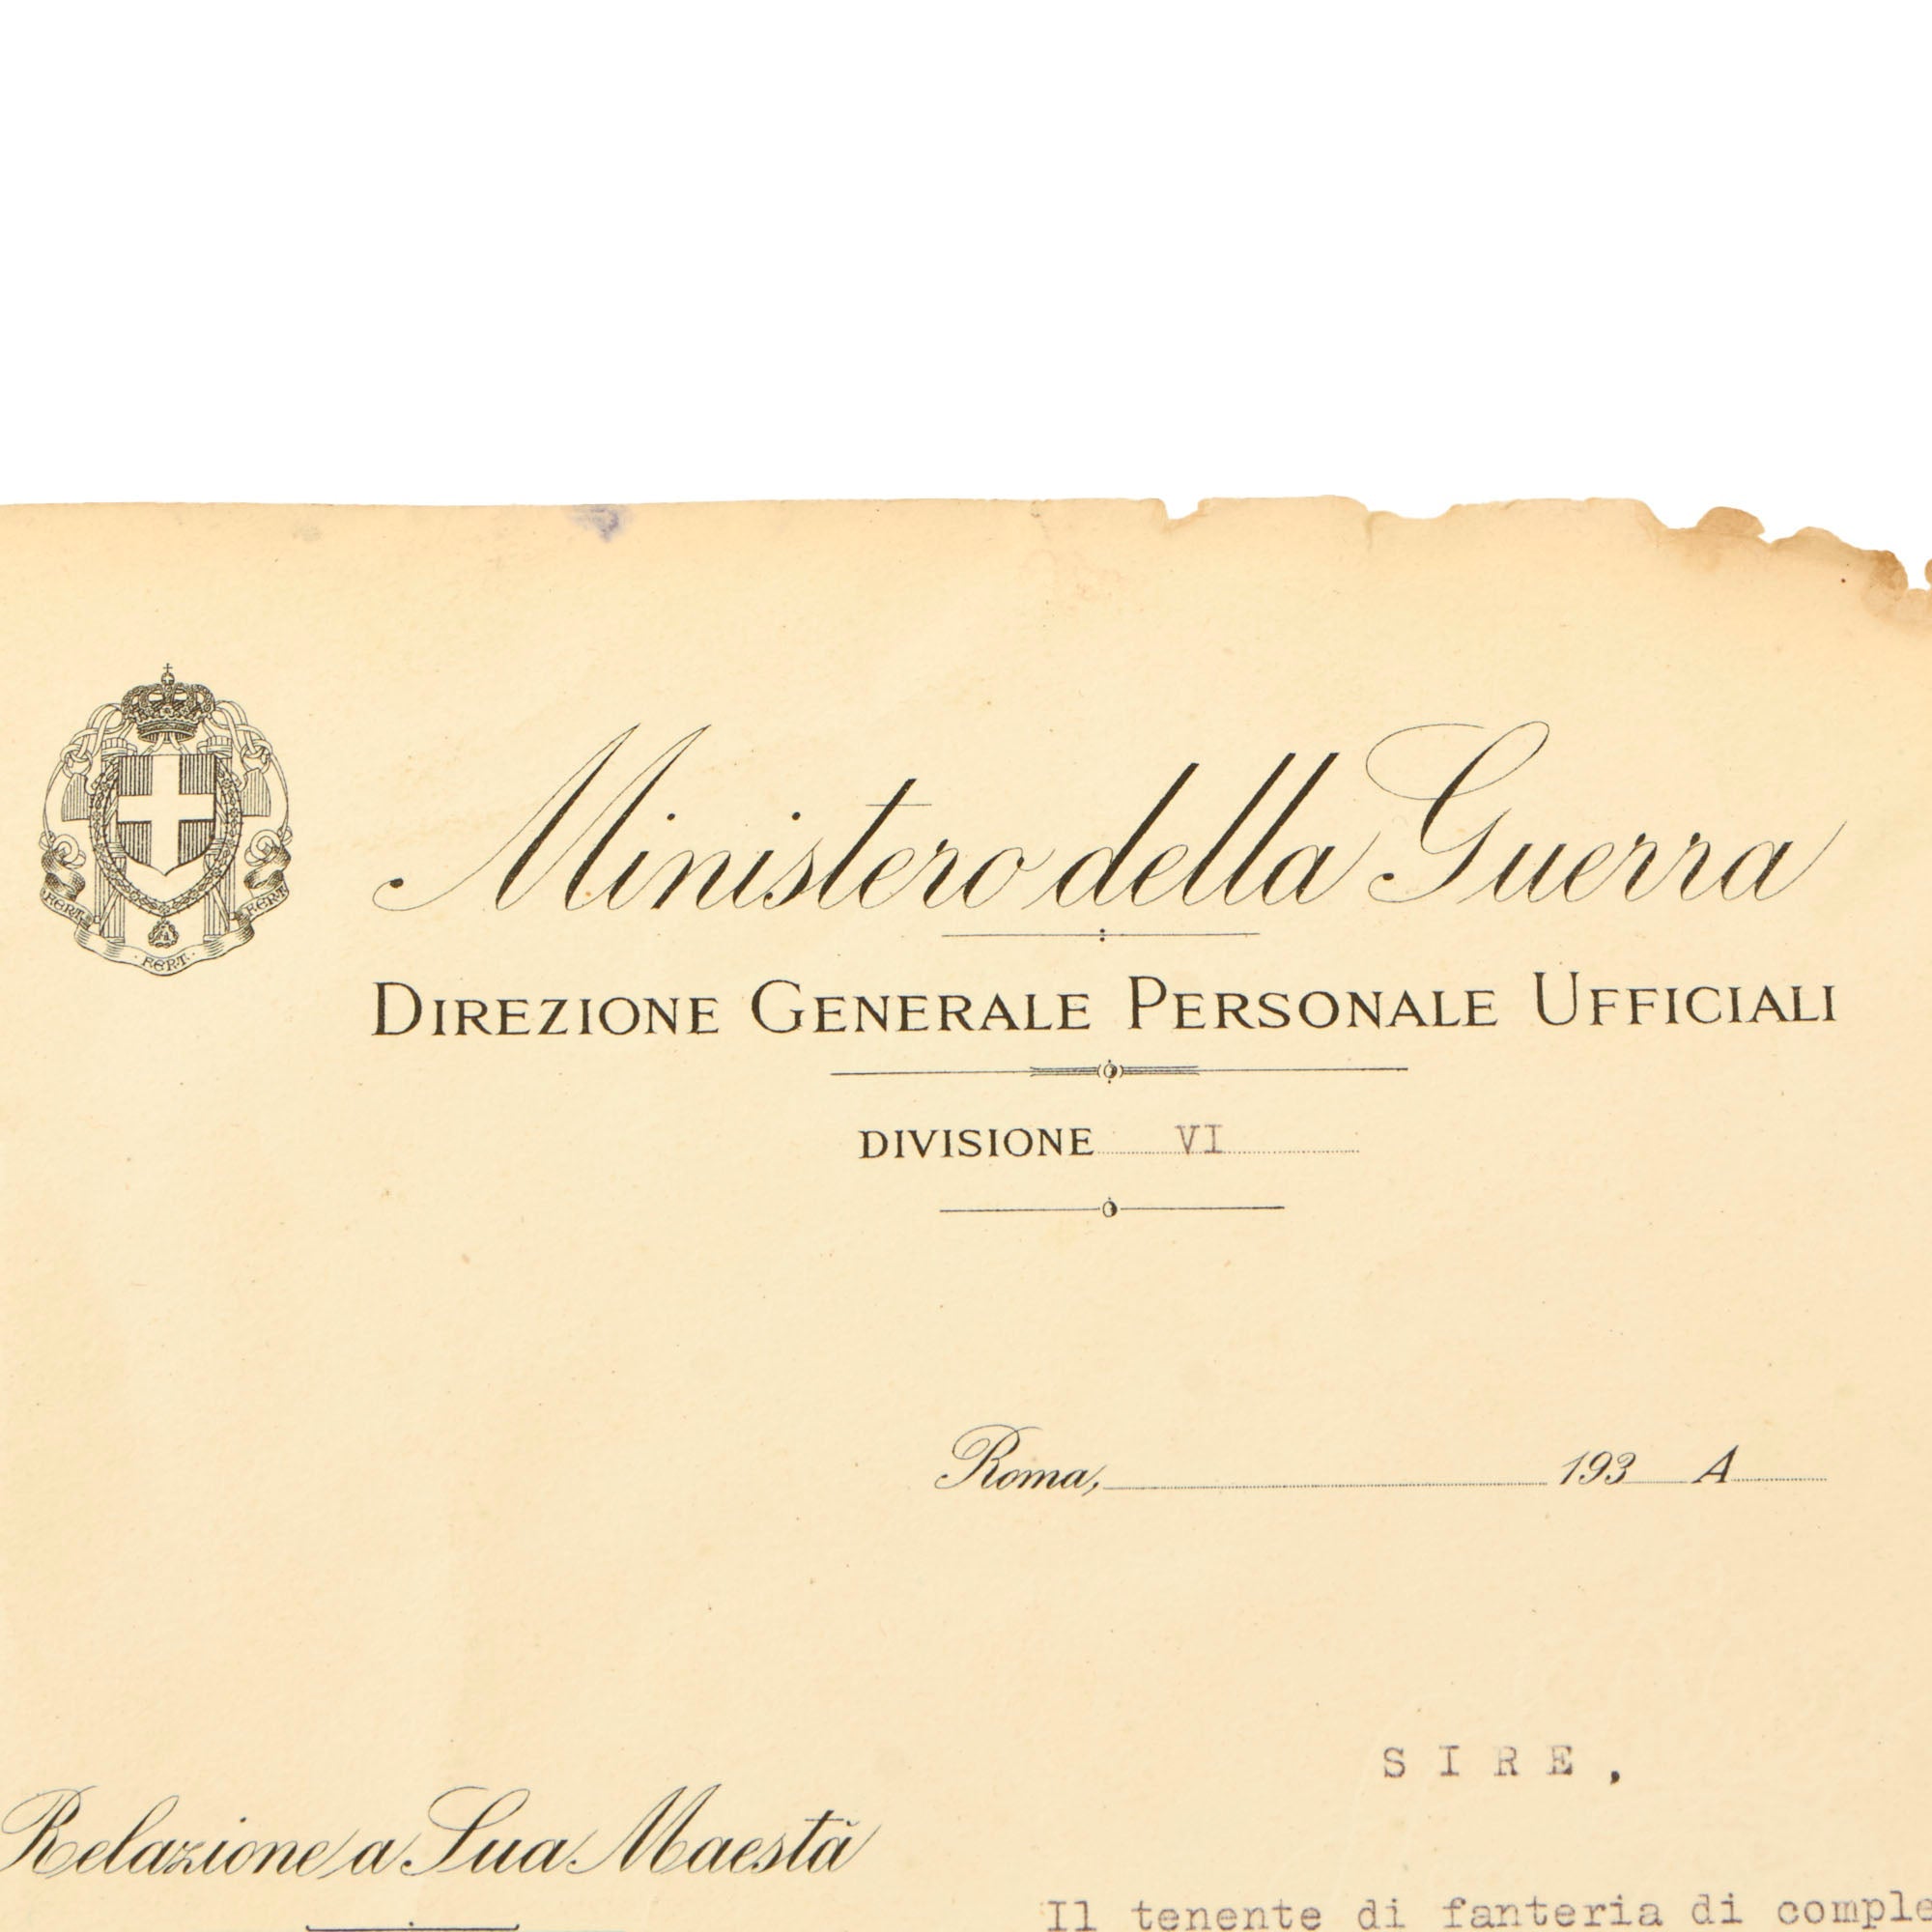 Ministero della Guerra
DIREZIONE GENERALE PERSONALE UFFICIALI
DIVISIONE VI
FERT FERT
FERT
Roma, 193 A
SIRE,
Relazione a Sua Maestà
Il tenente di fanteria di comple